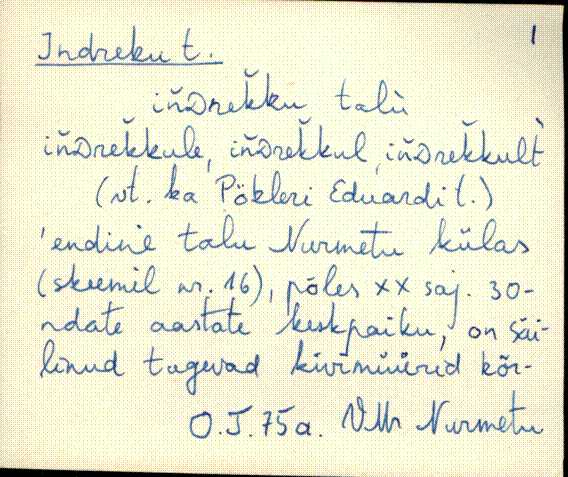 1
Indreku t.
iňᴅreǩku talù
iňᴅreǩkule, iňᴅreǩkul, iňᴅreǩkulť
(vt. ka Pökleri Eduardi t.)
'endine talu Nurmetu külas
(skeemil nr. 16), põles XX saj. 30-
ndate aastate keskpaiku, on säi-
linud tugevad kivimüürid kõr-
O.J.75a. VMr Nurmetu